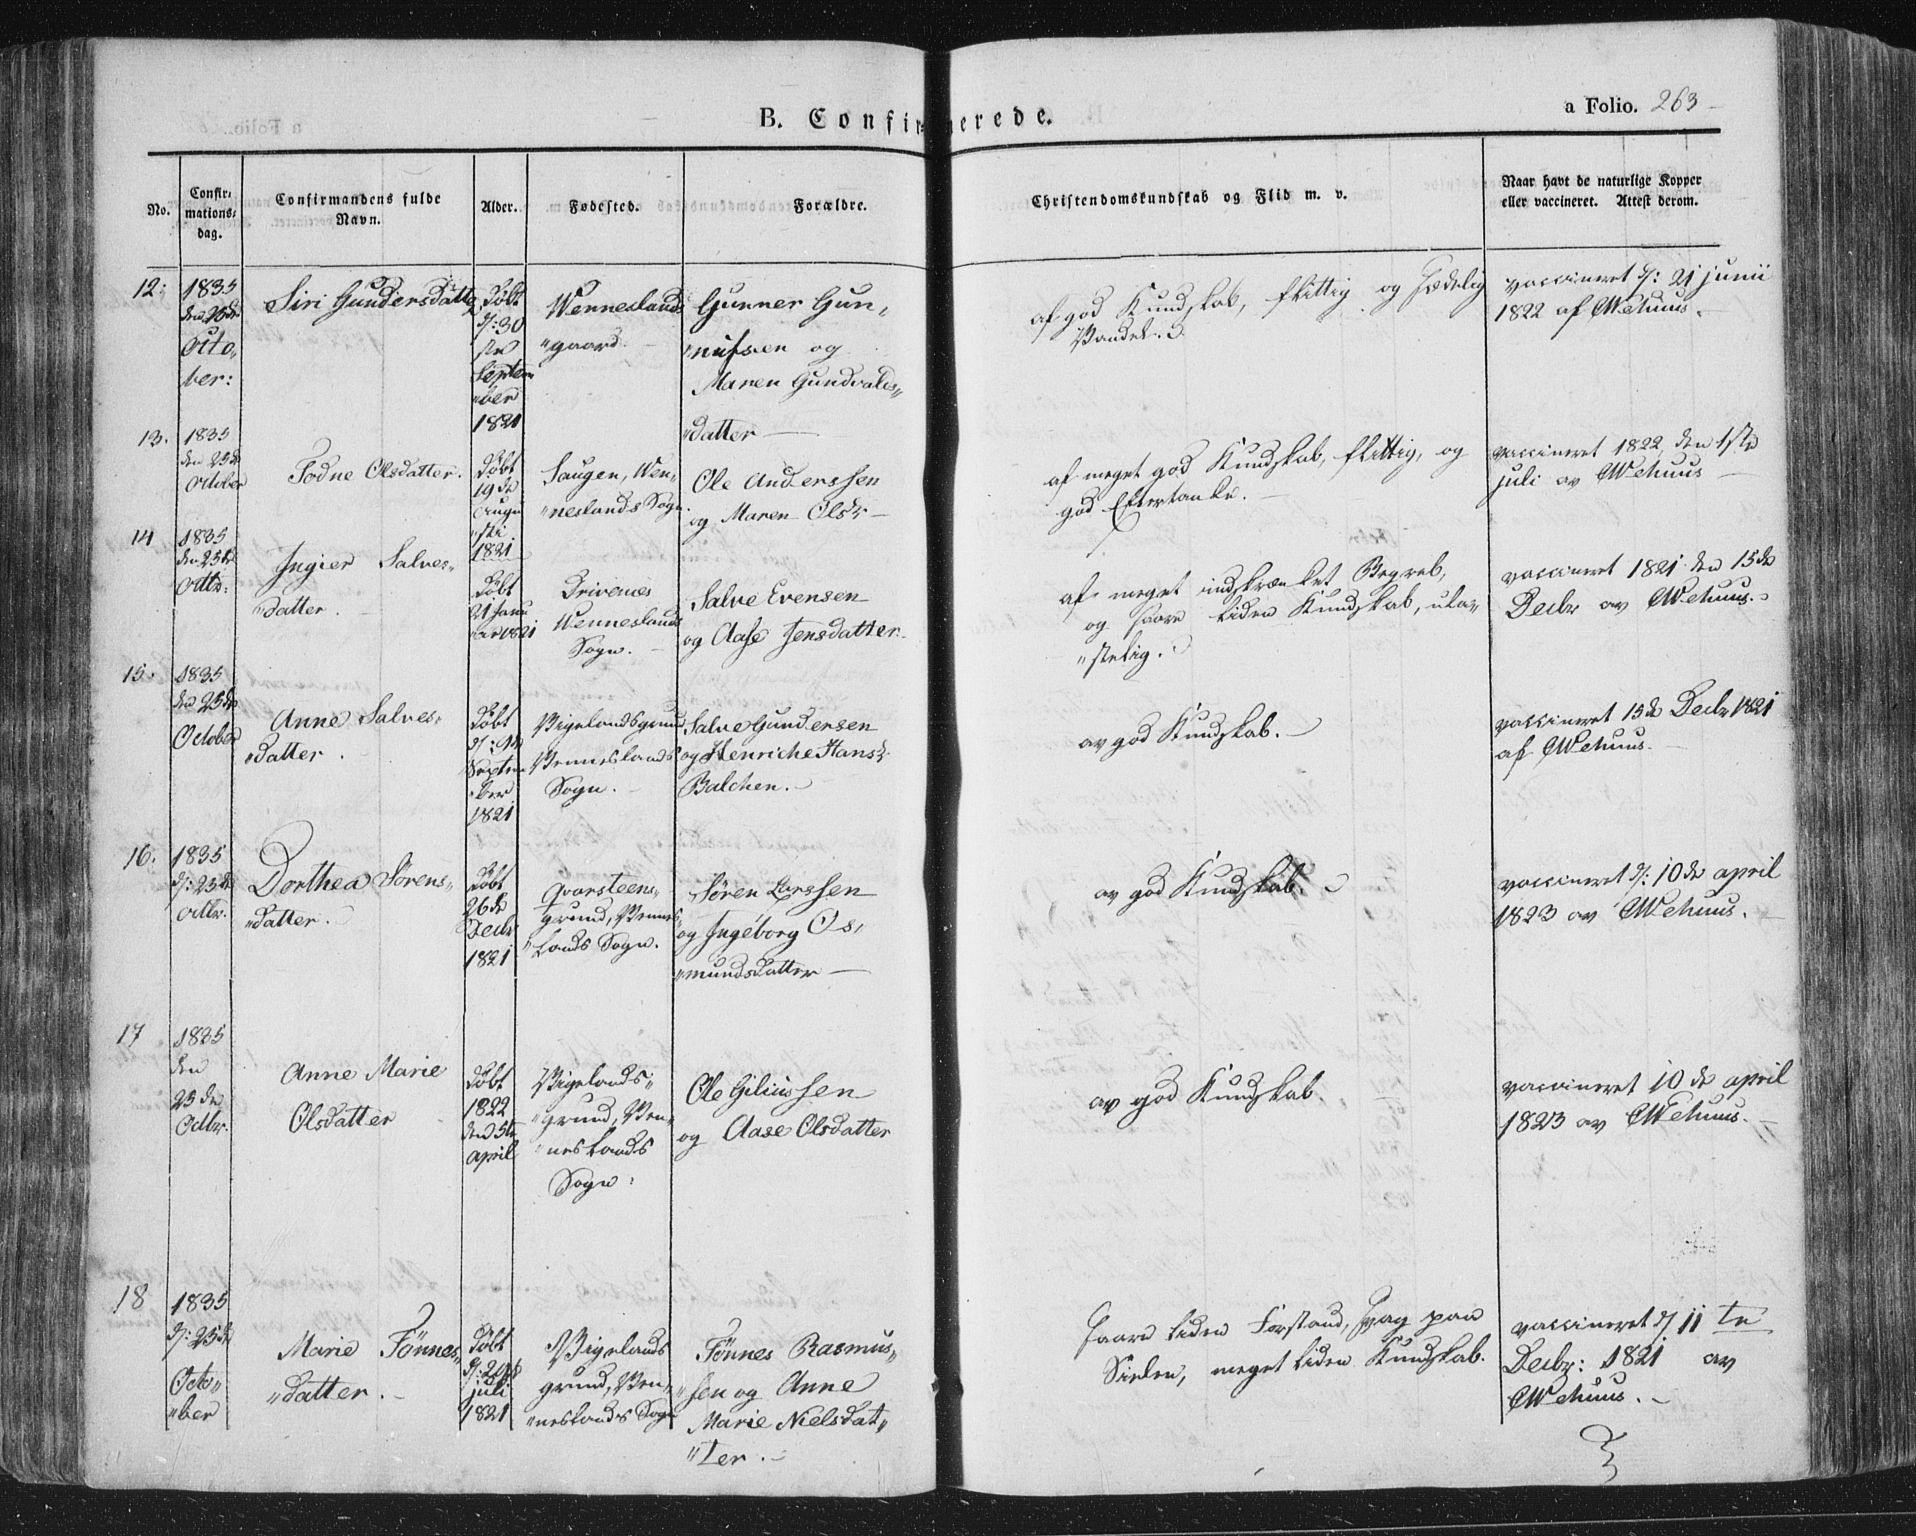 B. Confirmerede.
a Folio. 263
No.
Confir-
mations-
dag.
Confirmandens fulde
Navn.
Alder.
Fødested.
Forældre.
Christendomskundskab og Flid m. v.
Naar havt de naturlige Kopper
eller vaccineret. Attest derom.
12:
1835
den 25de
Octo„
ber:
Siri Gundersdatter
døbt
d: 30
Septem
„ber
1821
Wenneslands
„gaard
Gunner Gun„
„nufsen og
Maren Gundvalds„
„datter —
af god Kundskab, flittig og sædelig
Vandel.
vaccineret d: 21 junii
1822 af CWehuus.
13.
1835
den 25de
October
Todne Olsdatter.
døbt
19de
Augu
„sti
1821
Haugen, Wen„
„neslands Sogn.
Ole Anderssen
og Maren Olsdr —
af meget god Kundskab, flittig, og
god Eftertanke. —
vaccineret 1822, den 1ste
juli av CWehuus —
14
1835
den 25de
Octbr:
Ingier Salves„
„datter.
døbt
21 Janu
ar 1821
Drivenes
Wenneslands
Sogn. —
Salve Evensen
og Aase Jensdatter.
af meget indskrænket Begreb,
og saare liden Kundskab, ula„
„stelig.
vaccineret 1821 den 15de
Decbr av CWehuus.
15.
1835
den 25de
October
Anne Salves„
„datter.
døbt
d: 9de
Septem
„ber
1821
Vigelandsgrund
Venneslands
Sogn. —
Salve Gundersen
og Henriche Hansdr
Balchen. —
av god Kundskab. —
vaccineret 15de Decbr 1821
af CWehuus. —
16.
1835
d: 25de
Octbr.
Dorthea Sörens„
„datter.
døbt
26de
Decbr
1821
Qvarsteens„
grund, Vennes„
lands Sogn.
Sören Larssen
og Ingeborg Os„
„mundsdatter —
av god Kundskab.
vaccineret d: 10de april
1823 av CWehuus. —
17
1835
den
25de
Octbr.
Anne Marie
Olsdatter
døbt
1822
den 5te
april
Vigelands„
„grund, Ven„
„neslands
Sogn.
Ole Giliussen
og Aase Olsdatter
av god Kundskab.
vaccineret 10de april
1823 av CWehuus. —
18
1835
d: 25de
Octo„
„ber
Marie Tönnes„
„datter. —
døbt
juli
1821
Vigelands
grund, Ven„
„neslands Sogn
Tönnes Rasmus„
„sen og Anne
Marie Nielsdat„
„ter. —
saare liden Forstand, svag paa
Sielen, meget liden Kundskab.
vaccineret d 11te
Decbr: 1821 av
CWehuus. —